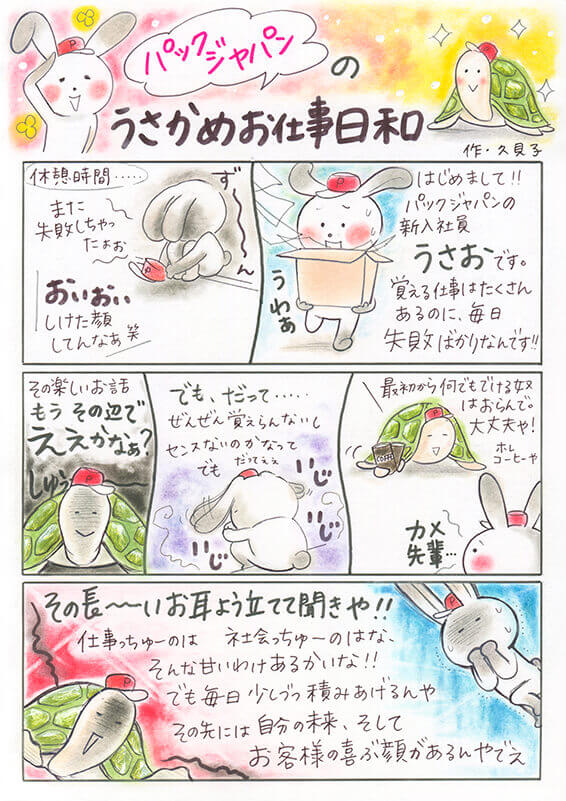 パックジャパン
の
うさかめお仕事日和
作・久見子
P
P
はじめまして!!
パックジャパンの
新入社員
うさおです。
覚える仕事はたくさん
あるのに、毎日
失敗ばかりなんです!!
うわぁ
P
休憩時間……
ず〜〜ん
また
失敗しちゃっ
たぁぉ
P
おぃおぃ
しけた顔
してんなあ 笑
最初から何でもでける奴
はおらんで。
大丈夫や!
ホレ
コーヒーや
COFFEE
カメ
先輩…
でも、だって‥‥‥
ぜんぜん覚えらんないし
センスないのかなって
でも だってぇぇ
いじ
いじ
いじ
その楽しいお話
もう その辺で
ええかなぁ?
しゅぅ
その長〜〜いお耳よう立てて聞きや!!
仕事っちゅーのは 社会っちゅーのはな、
そんな甘いわけあるかいな!!
でも毎日 少しづつ積みあげるんや
その先には自分の未来、そして
お客様の喜ぶ顔があるんやでぇ